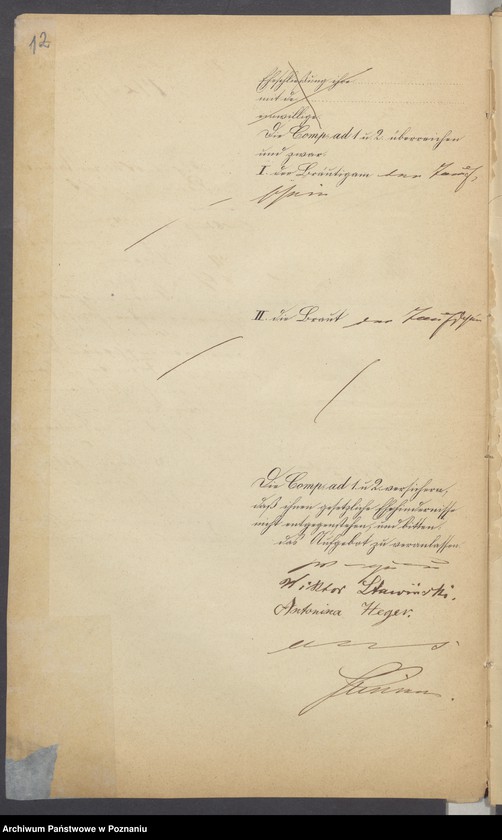 12
Eheschließung ihre
mit de
einwillige
Die Comp. ad 1 u 2. überreichen
und zwar
I. der Bräutigam den Tauf-
schein
II. die Braut den Taufschein
Die Comp. ad 1 u 2. versichern,
daß ihnen gesetzliche Ehehindernisse
nicht entgegenstehen, und bitten,
das Aufgebot zu veranlassen.
Wiktor Stawinski.
Antonina Heger.
Archiwum Państwowe w Poznaniu